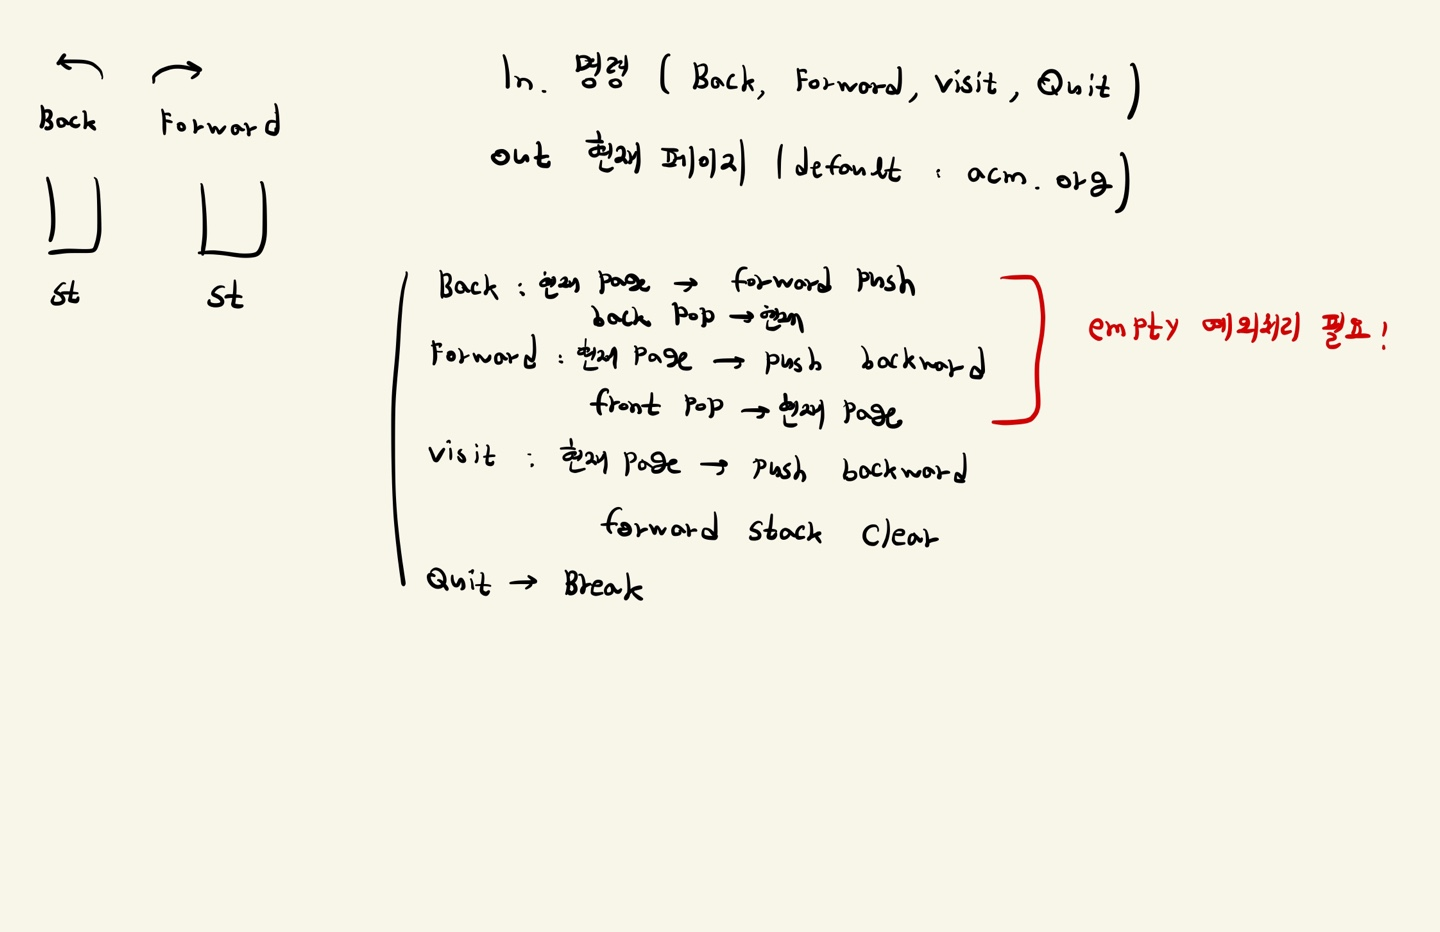 Back Forward
st st
In. 명령 ( Back, Forward, visit, Quit )
out 현재 페이지 (default : acm.org)
Back : 현재 page → forward push
back pop → 현재
Forward : 현재 page → push backward
front pop → 현재 page
visit : 현재 page → push backward
forward stack clear
Quit → Break
empty 예외처리 필요!